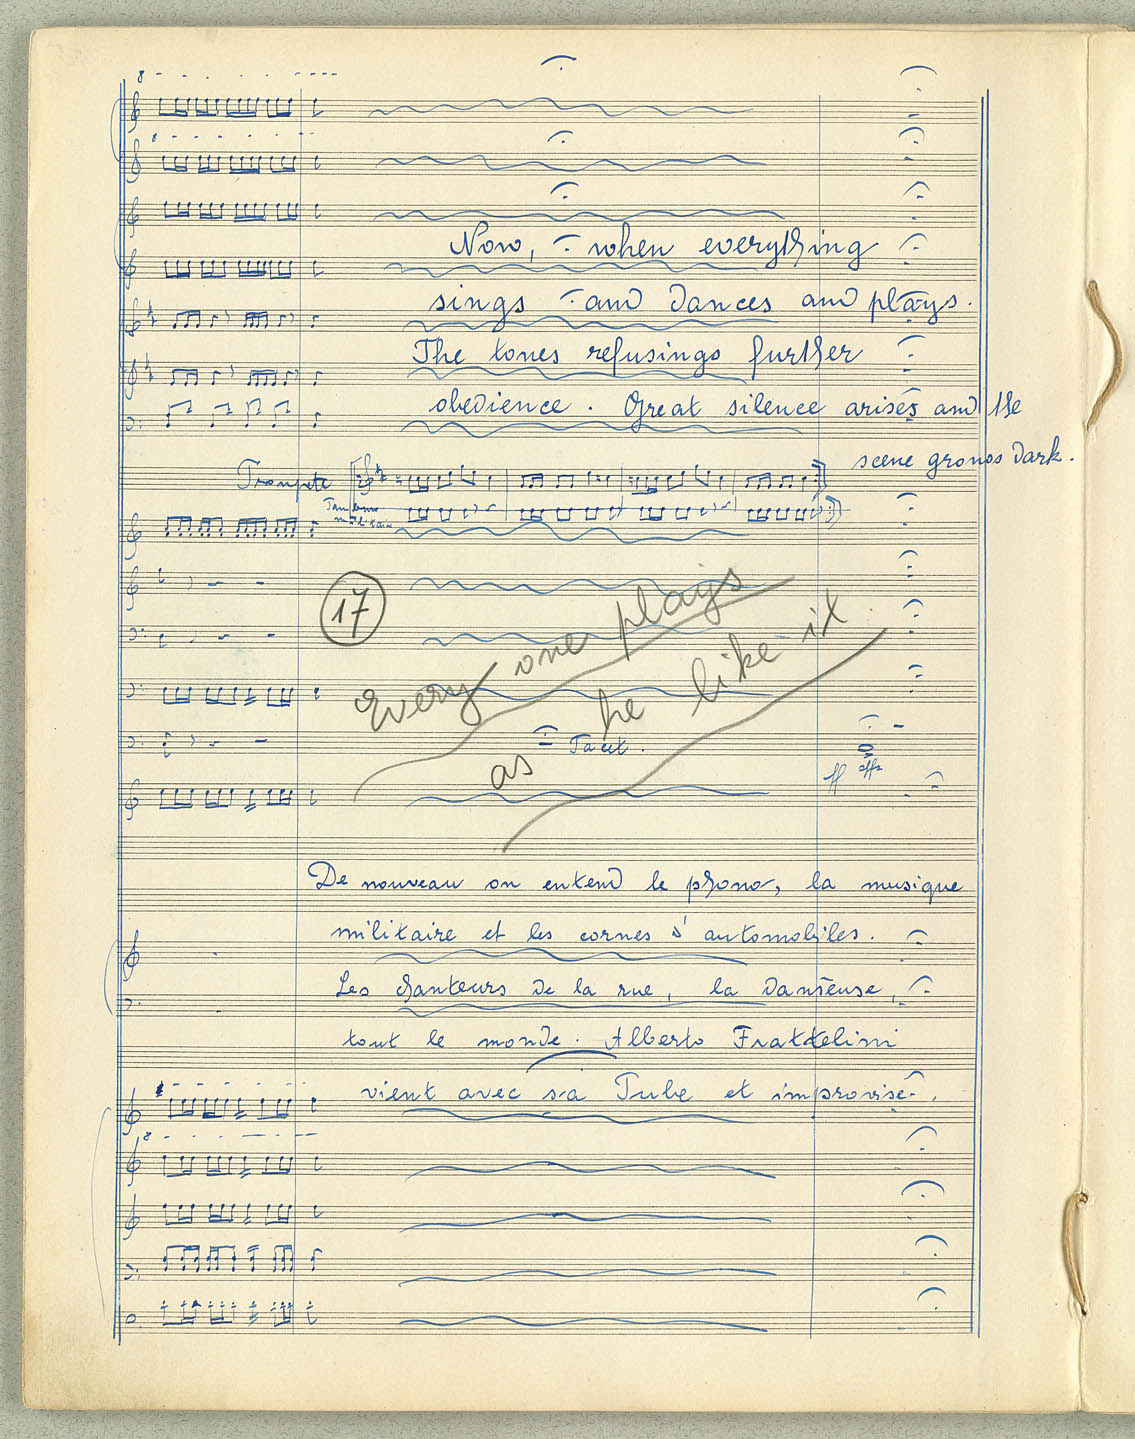 Now, when everything
sings and dances and plays.
The tones refusings further
obedience. Great silence arises and the
scene grows dark.
Trompete
Tambour
militaire
17
Every one plays
as he like it
Tacet.
ff sffz
De nouveau on entend le phono, la musique
militaire et les cornes d'automobiles.
Les chanteurs de la rue, la danseuse,
tout le monde. Alberto Frattelini
vient avec sa Tube et improvise.